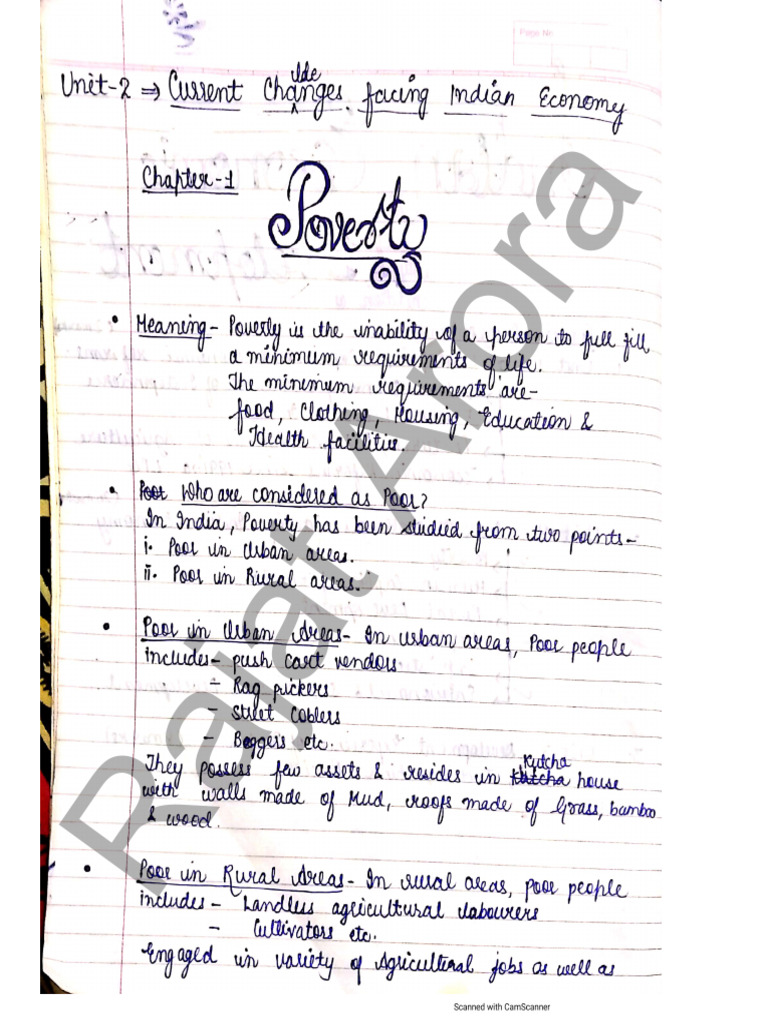 Page No
Unit-2 ⇒ Current Changes facing Indian Economy
lle
Chapter-1
Poverty
• Meaning - Poverty is the inability of a person to full fill
a minimum requirements of life.
The minimum requirements are-
food, Clothing, Housing, Education &
Health facilities.
• Poor Who are considered as Poor?
In India, Poverty has been studied from two points-
i. Poor in Urban areas.
ii. Poor in Rural areas.
• Poor in Urban Areas - In urban areas, Poor people
includes - push cart vendors
- Rag pickers
- Street Coblers
- Beggers etc.
Kutcha
They possess few assets & resides in house
with walls made of Mud, roofs made of Grass, bamboo
& wood.
• Poor in Rural Areas - In rural areas, poor people
includes - Landless agricultural labourers
- Cultivators etc.
Engaged in variety of Agricultural jobs as well as
Rajat Arora
Scanned with CamScanner